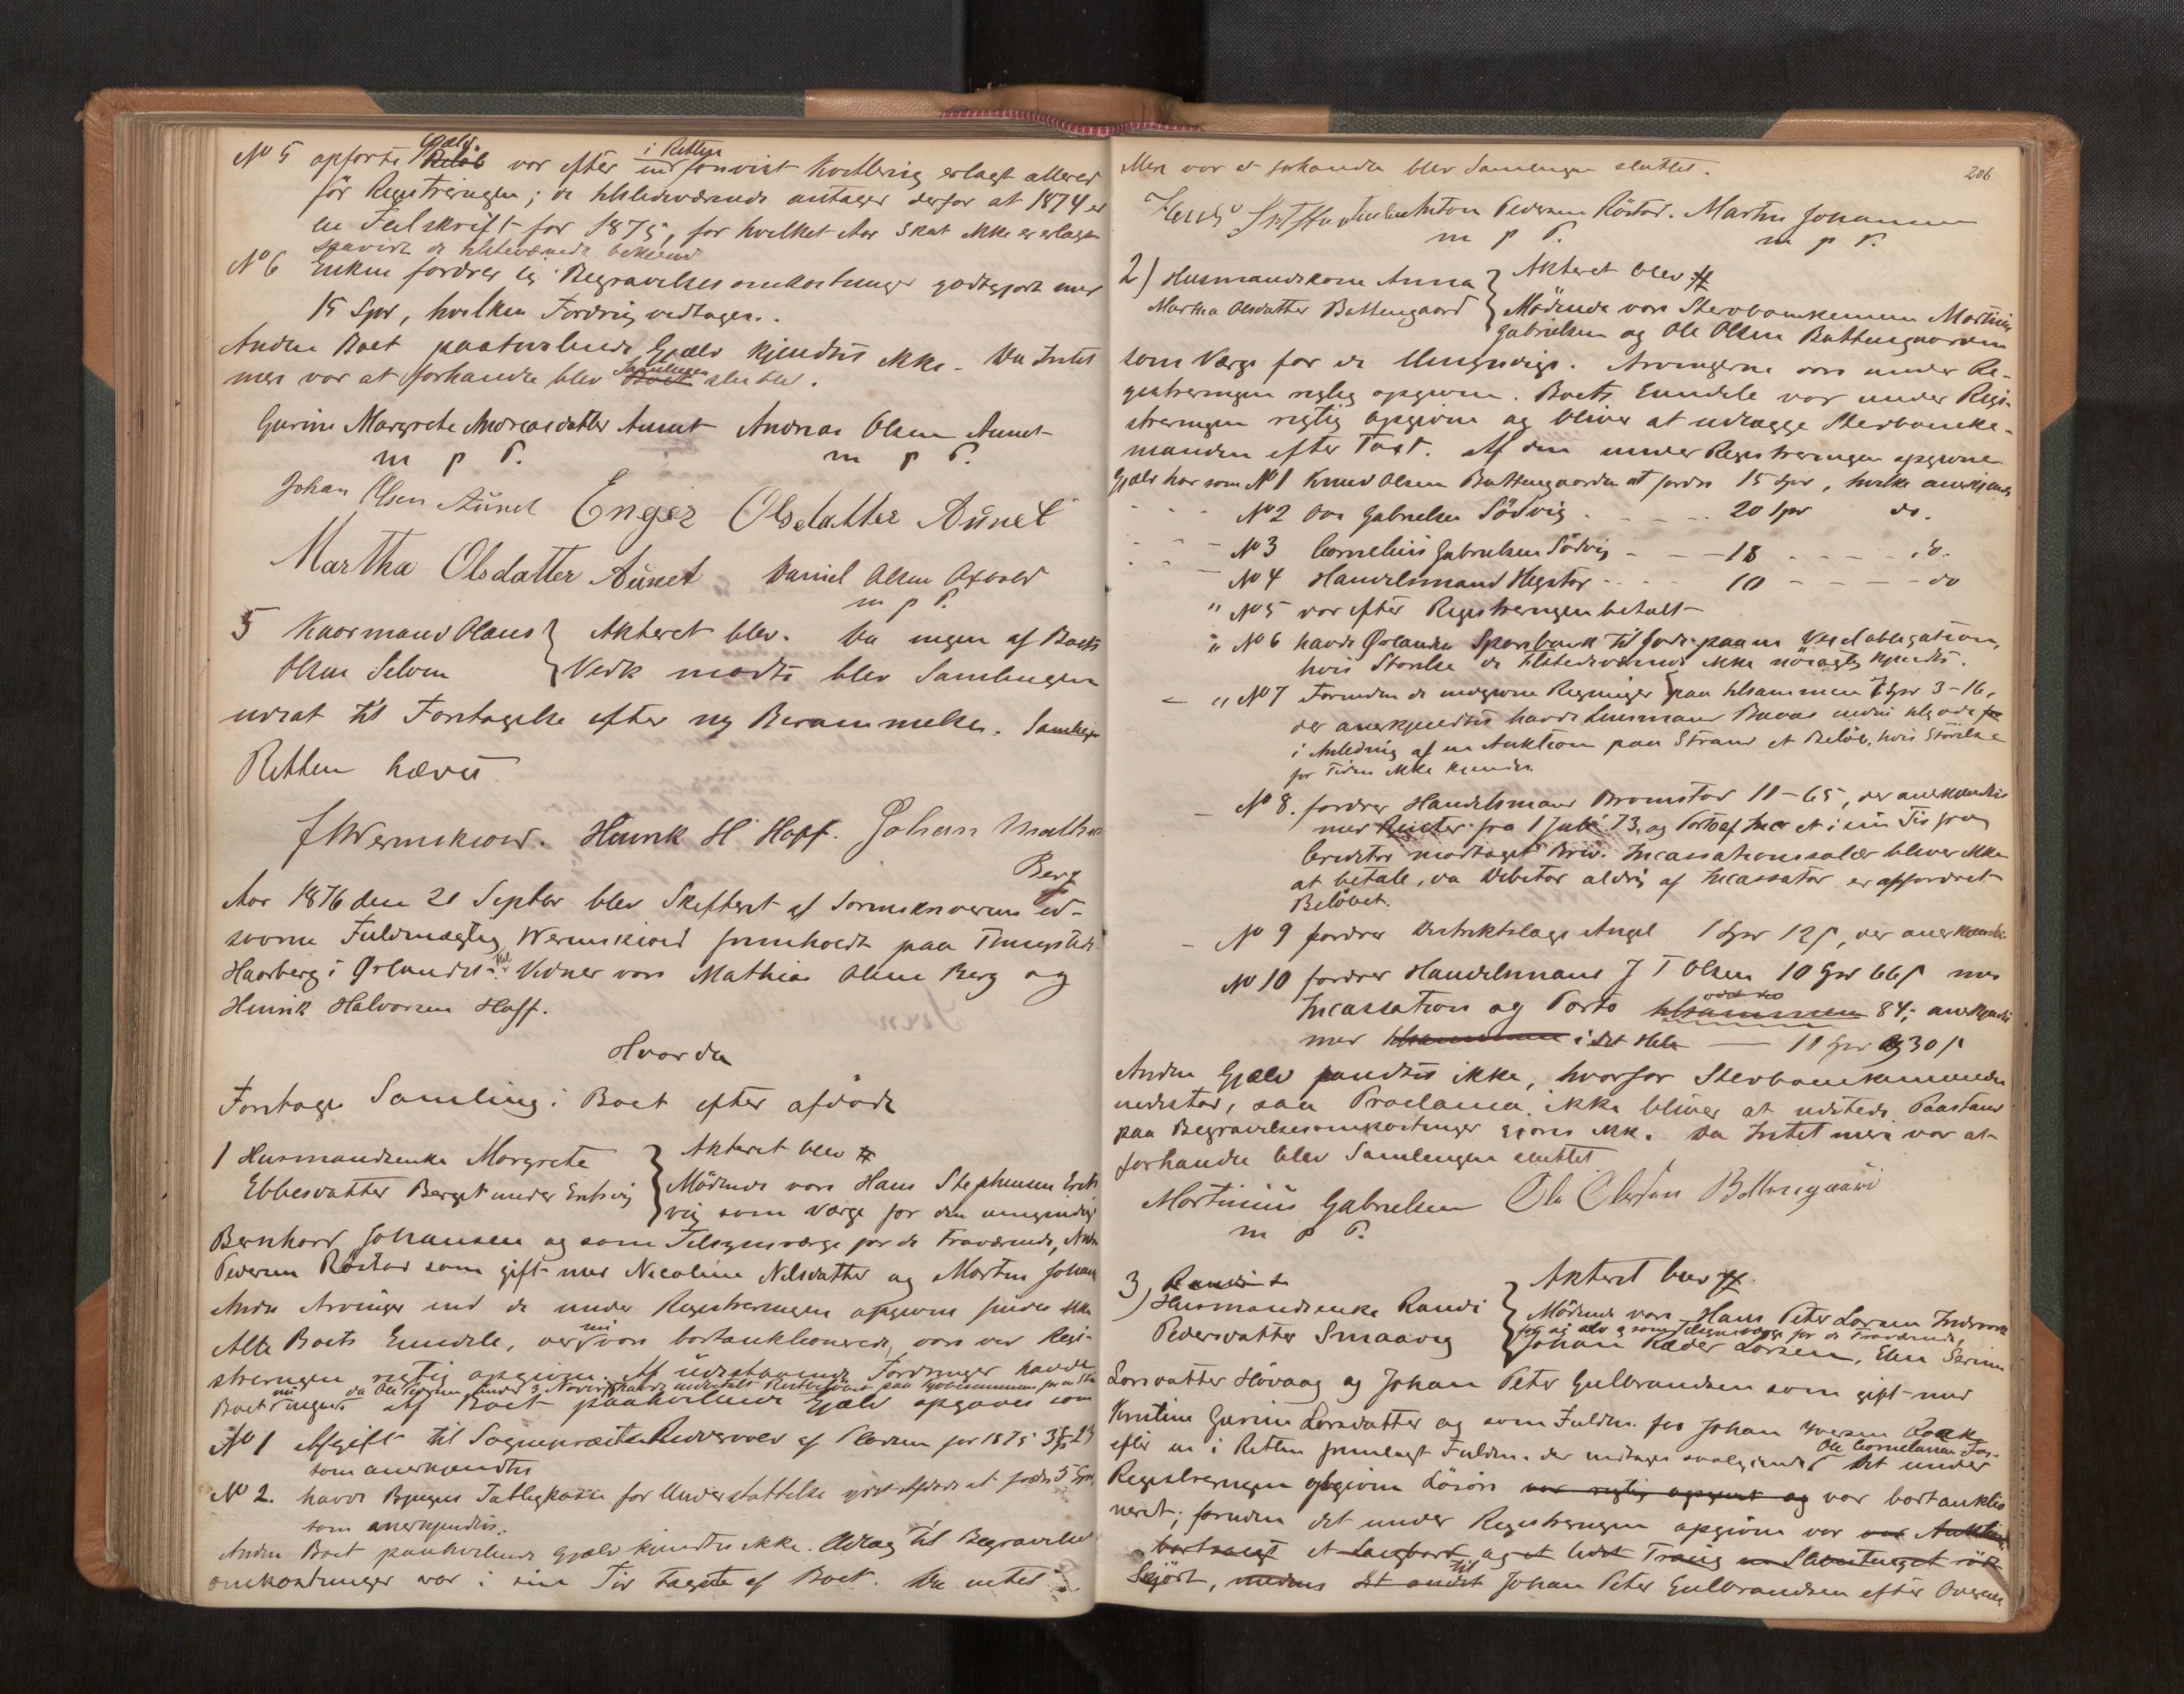 No 5 opførte Gjæld Beløb var efter i Retten fremvist Kvittering erlagt allered
før Registreringen; de tilstedeværende antager derfor at 1874 er
en Feilskrift for 1875, for hvilket Aar Skat ikke er erlagt
saavidt de tilsteværende bekjend
No 6 Enken fordrer sig Begravelsesomkostninger godtgjort med
15 Spd, hvilken Fordring vedtages.
Anden Boet paahvilende Gjæld kjendtes ikke. Da Intet
mere var at forhandle blev Boet Samlingen sluttet.
Gurine Margrete Andreasdatter Aunet Andreas Olsen Aunet
m p P. m p P.
Johan Olsen Aunet Enger Olsdatter Aunet
Martha Olsdatter Aunet Daniel Olsen Opvold
m p P.
5 Kaarmand Olaus Akteret blev. Da ingen af Boets
Olsen Selven Vedk mødte blev Samlingen
udsat til Foretagelse efter ny Berammelse. Samlingen
Retten hævet
Wernskiold. Henrik H Hoff. Johan Mathias
Berg
Aar 1876 den 21 Septbr blev Skifteret af Sorenskriverens ed-
svorne Fuldmægtig Wernskiold fremholdt paa Thingstedet
Haarberg i Ørlandet. Vidner vare Mathias Olsen Berg og
Henrik Halvorsen Hoff.
Hvorda
Foretoges Samling i Boet efter afdøde
1 Husmandsenke Margrete Akteret blev
Ebbesdatter Berget under Ervig Mødende vare Hans Stephensen Erv
vig som Værge for den umyndige
Bernhard Johansen og som Tilsynsværge for de Fraværende,
Pedersen Røstad som gift med Nicoline Nilsdatter og Martin Johan
Andre Arvinger end de under Registreringen opgivne findes ikke
Alle Boets Eiendele, der nu vare bortauktionerede, vare ved Regi-
streringen rigtig opgivne. Af udestaaende Fordringer havde
Boet nu ingen. Af Boet paahvilende Gjæld opgaves som
No 1 Afgift til Sogneprest Riddervold af Pladsen for 1875
som anerkjendtes
No 2. havde Bjugns Fattigkasse for Understøttelse ydet Afdøde at fordre 5 Spd,
som anerkjendtes.
Anden Boet paahvilende Gjæld kjendtes ikke. Udlæg til Begravelses
omkostninger var i sin Tid tagne af Boet. Da intet
206
Mere var at forhandle blev Samlingen sluttet.
Anton Pedersen Røstad. Martin Johansen
m p P. m p P.
2) Husmandskone Anna Akteret blev
Martha Olsdatter Battengaard Mødende vare Sterboenkemand Martinus
Gabrielsen og Ole Olsen Battengaarden
som Værge for de Umyndige. Arvingerne vare under Re-
gistreringen rigtig opgivne. Boets Eiendele var under Regi-
streringen rigtig opgivne og bliver at udlægge Sterboenke-
manden efter Taxt. Af den under Registreringen opgivne
Gjæld har som No 1 Knud Olsen Battengaarden at fordre 15 Spd, hvilke anerkjendes
No 2 Ove Gabrielsen Sødvig 20 Spd do.
No 3 Cornelius Gabrielsen Sødvig 18 do.
No 4 Handelsmand Hegstad 10 do
" No 5 var efter Registreringen betalt
" No 6 havde Ørlandets Sparebank til Gode paa en Vexelobligation,
hvis Størrelse de tilstedeværende ikke nøiagtig kjendte.
" No 7 Foruden de indgivne Regninger paa tilsammen 7 Spd 3-16,
der anerkjendtes havde Lensmand Bavas endnu tilgode
i Anledning af en Auktion paa Strand et Beløb, hvis Størrelse
for Tiden ikke kjendes.
No 8. fordrer Handelsmand Bromstad 11-65, der anerkjendtes
med Renter fra 1 Juli 73, og Porto af et i sin Tid fra
Creditor modtaget Brev. Incassationssalær bliver ikke
at betale, da Debitor aldrig af Incassator er affordret
Beløbet.
No 9 fordrer Distriktslæge Angel 1 Spd 12 s, der anerkjendte
No 10 fordrer Handelsmand J T Olsen 10 Spd 66 s med
Incassation og Porto tilsammen 84; anerkjendt
med tilsammen i det Hele 11 Spd 30 s
Anden Gjæld fandtes ikke, hvorfor Sterboenkemanden
indestod, saa Proclama ikke bliver at udstede. Paastand
paa Begravelsesomkostninger gjøres ikke. Da Intet mere var at
forhandle blev Samlingen sluttet
Martinus Gabrielsen Ole Olesen Battengaard
m p P.
3) Randi
Husmandsenke Randi Akteret blev
Pedersdatter Smaavig Mødende vare Hans Peter Larsen
for sig selv og som Tilsynsværge for de Fraværende,
Johan Peder Larsen, Elen Serine
Larsdatter Høvaag og Johan Peter Gulbrandsen som gift med
Kristine Gurine Larsdatter og som Fuldm. for Johan Iversen
efter en i Retten fremlagt Fuldm. der indtages saalydende Ole Cornelius
Det under
Registreringen opgivne Løsøre var rigtig opgivet og var bortauktio
neret; foruden det under Registreringen opgivne var Auktion
bortsolgt et og et lidet Traug
Skjørt, medens det andet til Johan Peter Gulbrandsen efter